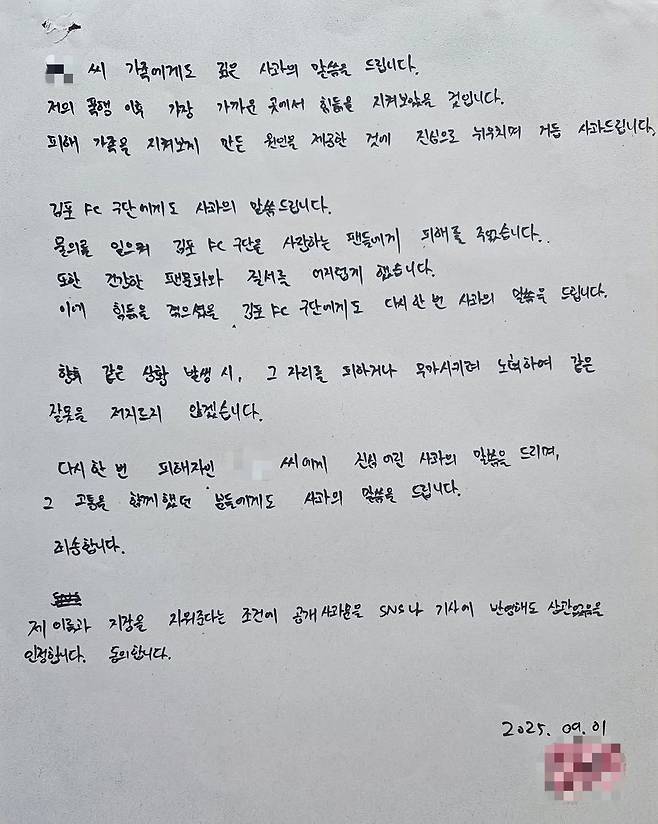 씨 가족에게도 깊은 사과의 말씀을 드립니다.
저의 폭행 이후 가장 가까운 곳에서 힘듦을 지켜보았을 것입니다.
피해 가족을 지켜보게 만든 원인을 제공한 것에 진심으로 뉘우치며 거듭 사과드립니다.
김포 FC 구단에게도 사과의 말씀드립니다.
물의를 일으켜 김포 FC 구단을 사랑하는 팬들에게 피해를 주었습니다.
또한 건강한 팬문화와 질서를 어지럽게 했습니다.
이에 힘듦을 겪으셨을 김포 FC 구단에게도 다시 한 번 사과의 말씀을 드립니다.
향후 같은 상황 발생 시, 그 자리를 피하거나 무마시키려 노력하여 같은
잘못을 저지르지 않겠습니다.
다시 한 번 피해자인 씨에게 진심 어린 사과의 말씀을 드리며,
그 고통을 함께 했던 분들에게도 사과의 말씀을 드립니다.
죄송합니다.
제 이름과 지장을 지워준다는 조건에 공개 사과문을 SNS나 기사에 반영해도 상관없음을
인정합니다. 동의합니다.
2025. 09. 01